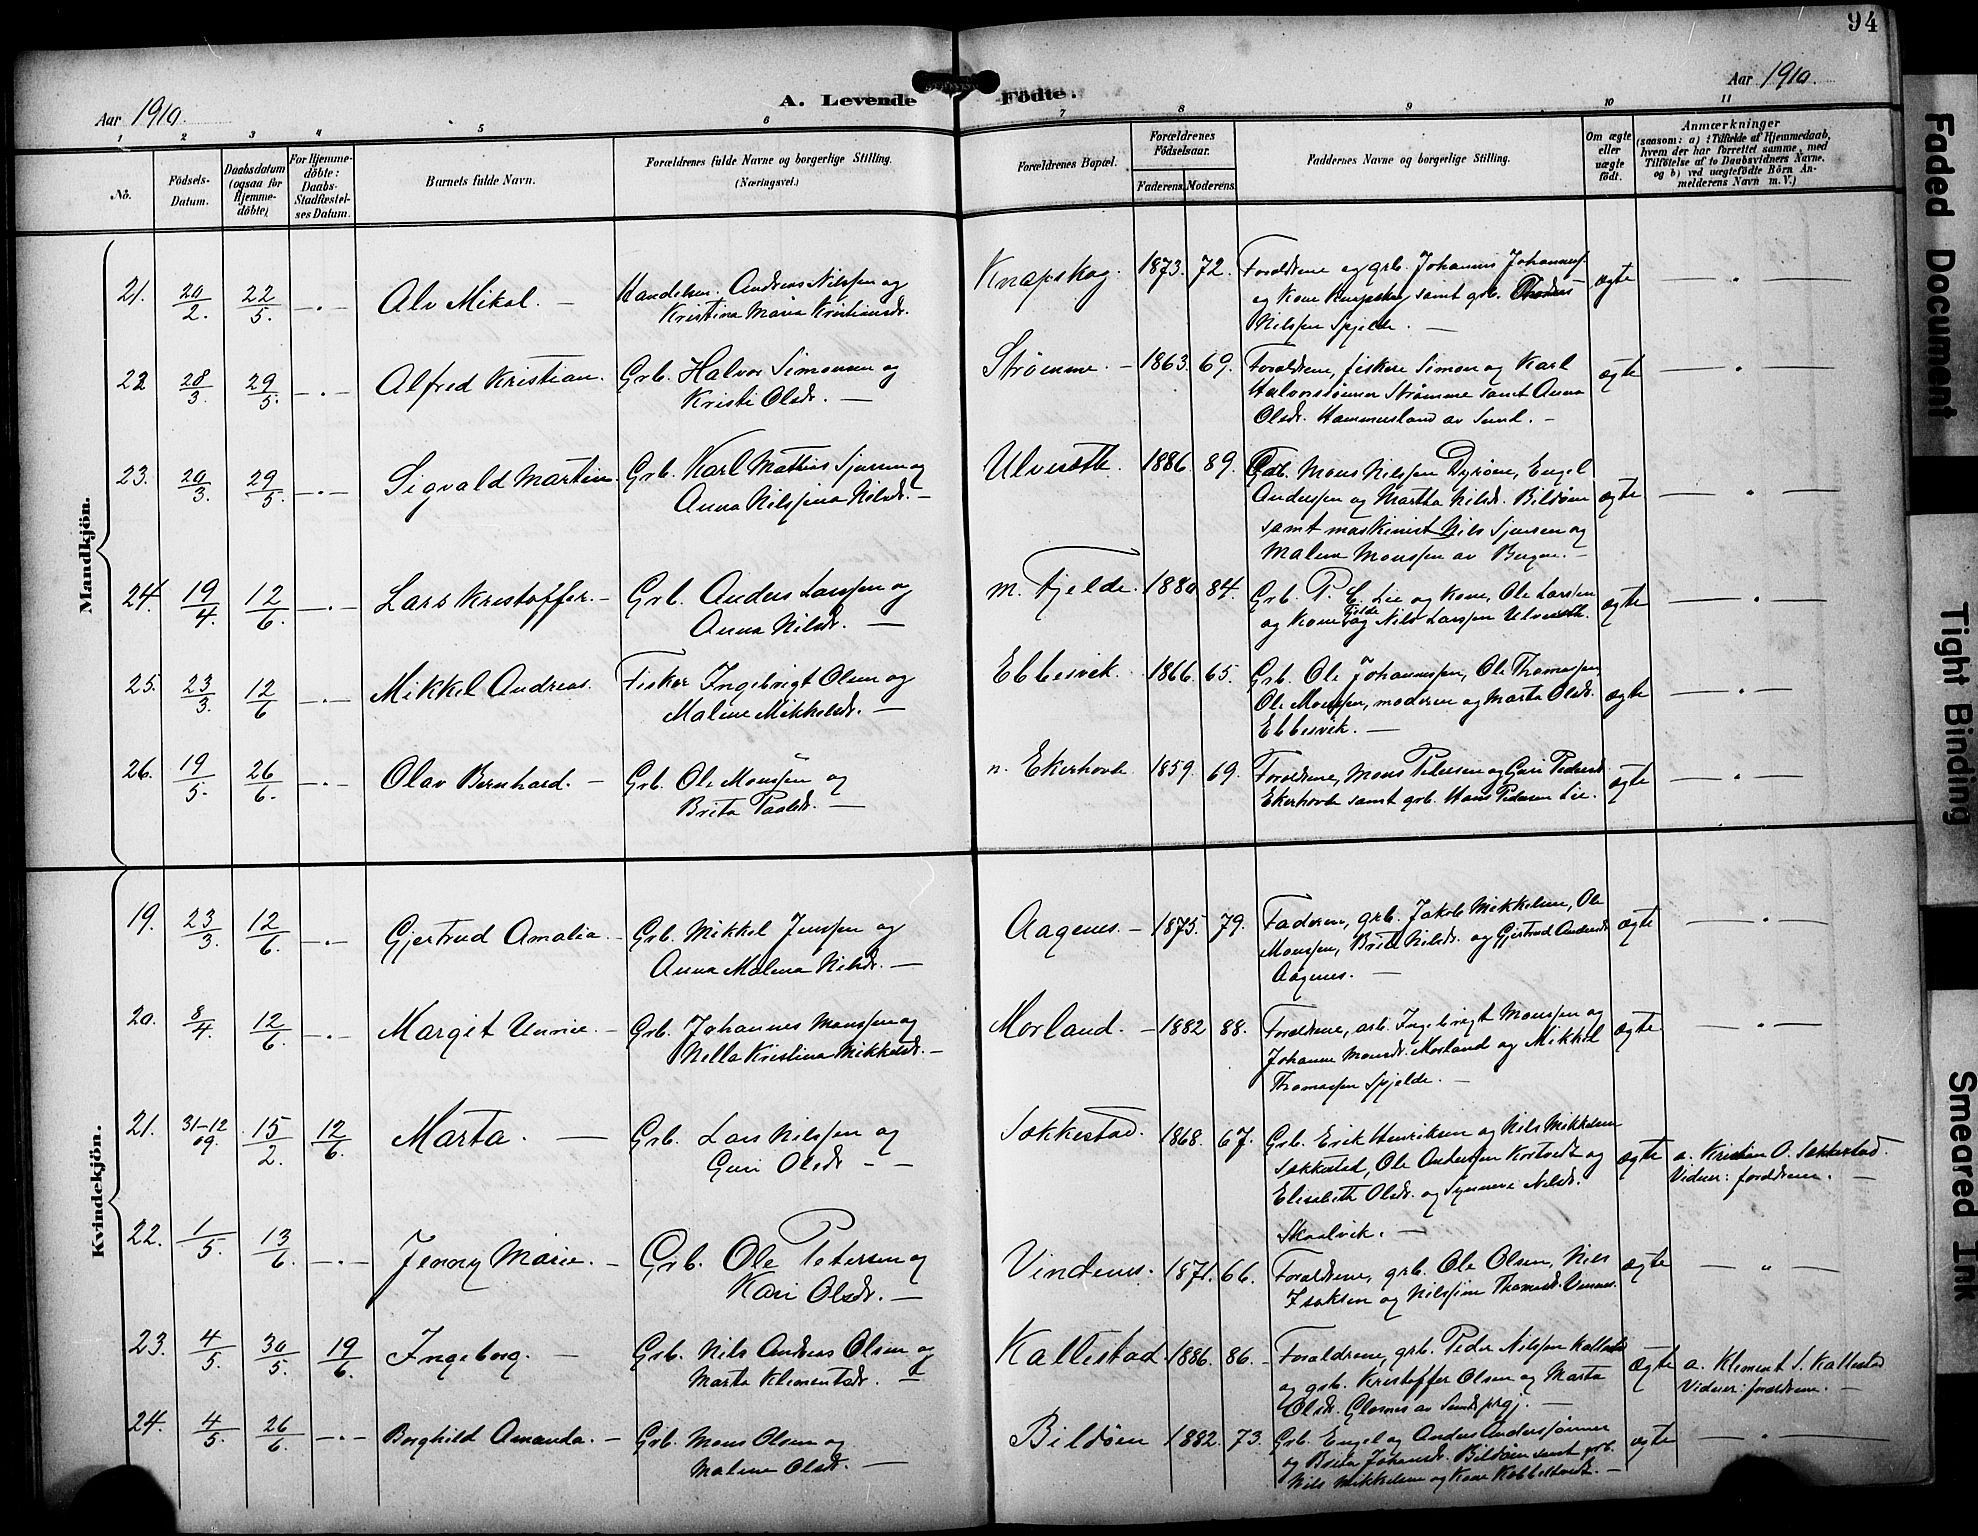 94
Aar 1910.
A. Levende Födte.
Aar 1910.
1 2 3 4 5 6 7 8 9 10 11
No.
Födsels-
Datum.
Daabsdatum
(ogsaa for
Hjemme-
döbte)
For Hjemme-
döbte:
Daabs-
Stadfæstel-
ses Datum.
Barnets fulde Navn.
Forældrenes fulde Navne og borgerlige Stilling.
(Næringsvei.)
Forældrenes Bopæl.
Forældrenes
Födselsaar.
Faderens. Moderens.
Faddernes Navne og borgerlige Stilling.
Om ægte
eller
uægte
født.
Anmærkninger
(saasom: a) i Tilfælde af Hjemmedaab,
hvem der har forrettet samme, med
Tilföielse af to Daabsvidners Navne.
og b) ved uægtefödte Börn An-
melderens Navn m. V.)
Mandkjön.
21. 20/2. 22/5. — Alv Mikal. — Handelsm. Andreas Nilssen og
Kristina Maria Kristiansdr.
Knapskog. 1873. 72. Forældrene og grb. Johannes Johannes.
og Kone Knapskog samt grb.
Nilssen Spjelde. — ægte
22 28/3. 29/5. — Alfred Kristian. Grb. Halvor Simonsen og
Kristi Olsdr. —
Strømme. — 1863. 69. Forældrene, fiskere Simon og Karl
Halvorssønner Strømme samt Anna
Olsdr. Hammersland av Sund. — ægte
23. 20/3. 29/5. — Sigvald Martin. Grb. Karl Mathias Sjursen og
Anna Nilssina Nilsdr. —
Ulvesæth. 1886. 89. Grb. Mons Nilssen Dyrøen, Engel
Anderssen og Martha Nilsdr. Bildøen
samt maskinist Nils Sjursen og
Malene Monssen av Bergen. — ægte
24. 19/4. 12/6. — Lars Kristoffer. — Grb. Anders Larssen og
Anna Nilsdr. —
m. Fjelde. 1880. 84. Grb. P. C. Lie og Kone, Ole Larssen
og Kone Fjelde og Nils Larssen Ulvesæth. ægte
25. 23/3. 12/6 — Mikkel Andreas. Fisker Ingebrigt Olsen og
Malene Mikkelsdr. —
Ebbesvik. 1866. 65. Grb. Ole Johannssen, Ole Thomassen,
Ole Monssen, moderen og Marta Olsdr.
Ebbesvik. — ægte
26. 19/5. 26/6. — Olav Bernhard. — Grb. Ole Monssen og
Brita Paalsdr. —
n. Ekerhovde 1859. 69. Forældrene, Mons Petersen og Guri Pedersd.
Ekerhovde samt grb. Hans Pedersen Lie. ægte
Kvindekjön.
19. 23/3. 12/6 — Gjertrud Amalia. — Grb. Mikkel Jenssen og
Anna Malena Nilsdr. —
Aagenes. — 1875. 79. Faderen, grb. Jakob Mikkelsen, Ole
Monssen, Brita Nilsdr. og Gjertrud Andersdr.
Aagenes. — ægte
20. 8/4. 12/6. — Margit Unnie. — Grb. Johannes Monssen og
Nella Kristina Mikkelsdr. —
Morland. — 1882 88. Forældrene, arb. Ingebrigt Monssen og
Johanne Monsdr. Morland og Mikkel
Thomassen Spjelde. — ægte
21. 31-12/09. 15/2. 12/6. Marta. — Grb. Lars Nilssen og
Guri Olsdr — —
Sækkestad. 1868. 67. Grb. Erik Henriksen og Nils Mikkelsen
Sækkestad, Ole Anderssen Kortvedt og
Elisabeth Olsdr. og Synneve Nilsdr.
Skaalvik. — ægte a. Kristen O. Sækkestad.
Vidner: forældrene. —
22. 1/5. 13/6. — Jenny Marie. — Grb. Ole Petersen og
Kari Olsdr. —
Vindenes. 1871. 66. Forældrene, grb. Ole Olsen, Nils
Isaksen og Nilssine Thomasdr. Vinnes. ægte
23. 4/5. 30/5. 19/6. Ingeborg. — Grb. Nils Andreas Olsen og
Marta Klementsdr. —
Kallestad 1886. 86. — Forældrene, grb. Peder Nilssen Kallestad
og grb. Kristoffer Olsen og Marta
Olsdr. Glesnes av Sunds prgj. — Ægte a. Klement S. Kallestad
Vidner: forældrene. —
24. 4/5. 26/6. — Borghild Amanda. — Grb. Mons Olsen og
Malene Olsdr. —
Bildøen 1882. 73. Grb. Engel og Anders Anderssønner
og Brita Johansdr. Bildøen samt grb.
Nils Mikkelsen og Kone Kobbeltvedt. — ægte
Faded Document
Tight Binding
Smeared Ink